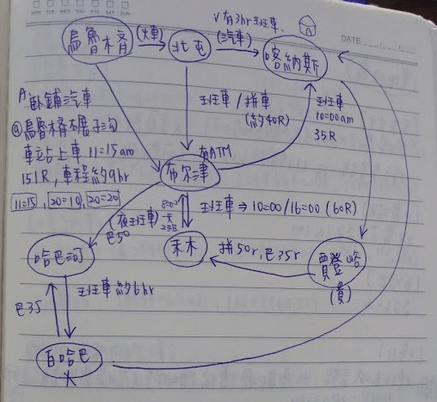 DATE
烏魯木齊
(火車)
北屯
√有3hr班車.
(汽車)
喀納斯
A 臥鋪汽車
@烏魯木齊碾子沟
車站上車 11=15am
151R, 車程約9hr
11=15, 20=10, 20=20
班車/拼車
(約40R)
班車
10=00am
35R
有ATM
布尔津
(夜班車)
巴50
班車⇒10=00/16=00 (60R)
禾木
拼50r, 巴35r
賈登峪
(貴)
哈巴河
巴35
班車約6hr
白哈巴